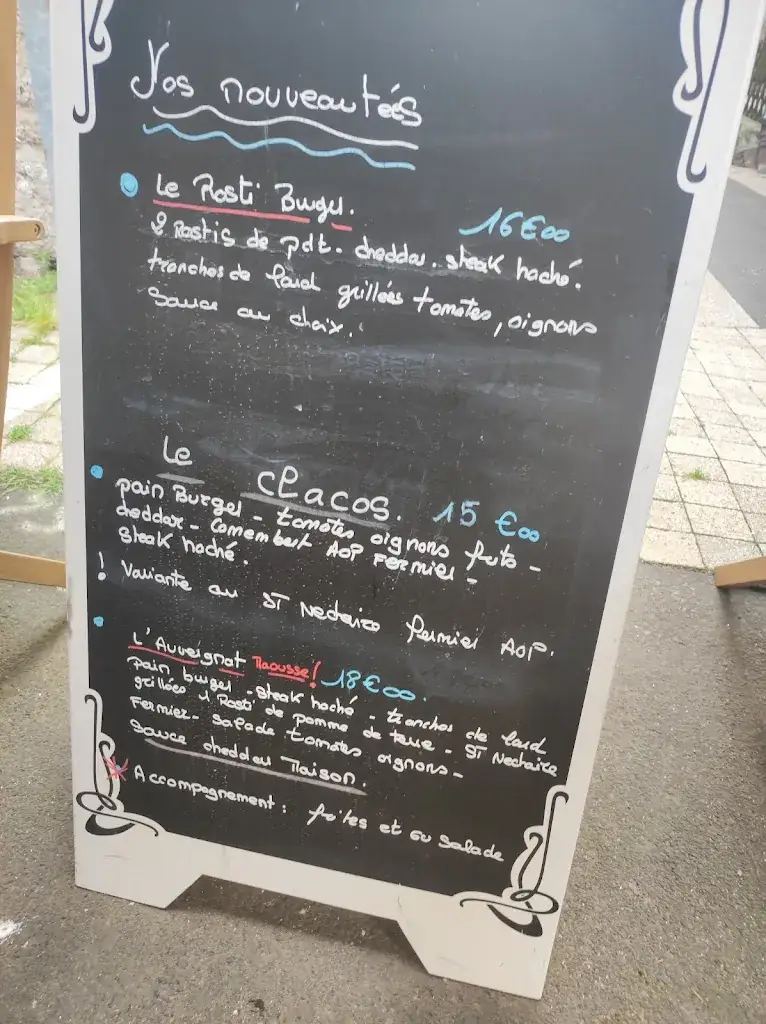 Nos nouveautés
Le Rosti Burger.
16€00
2 Rostis de pdt. cheddar. steak haché.
tranches de lard grillées tomates, oignons
Sauce au choix.
Le cLacos. 15 €00
pain Burger - tomates oignons frits -
cheddar - Camembert AOP Fermier -
Steak haché.
! Variante au ST Nectaire fermier AOP.
L'Auvergnat Maousse! 18€00.
pain burger - steak haché - tranches de lard
grillées 1 Rosti de pomme de terre - ST Nectaire
Fermier - Salade tomates oignons -
Sauce cheddar Maison.
* Accompagnement : frites et ou Salade